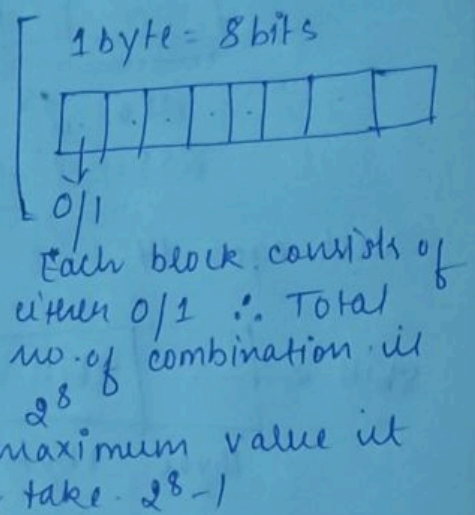 1 byte = 8 bits
0/1
Each block consists of
either 0/1 ∴ Total
no. of combination is
2⁸
maximum value it
take 2⁸-1